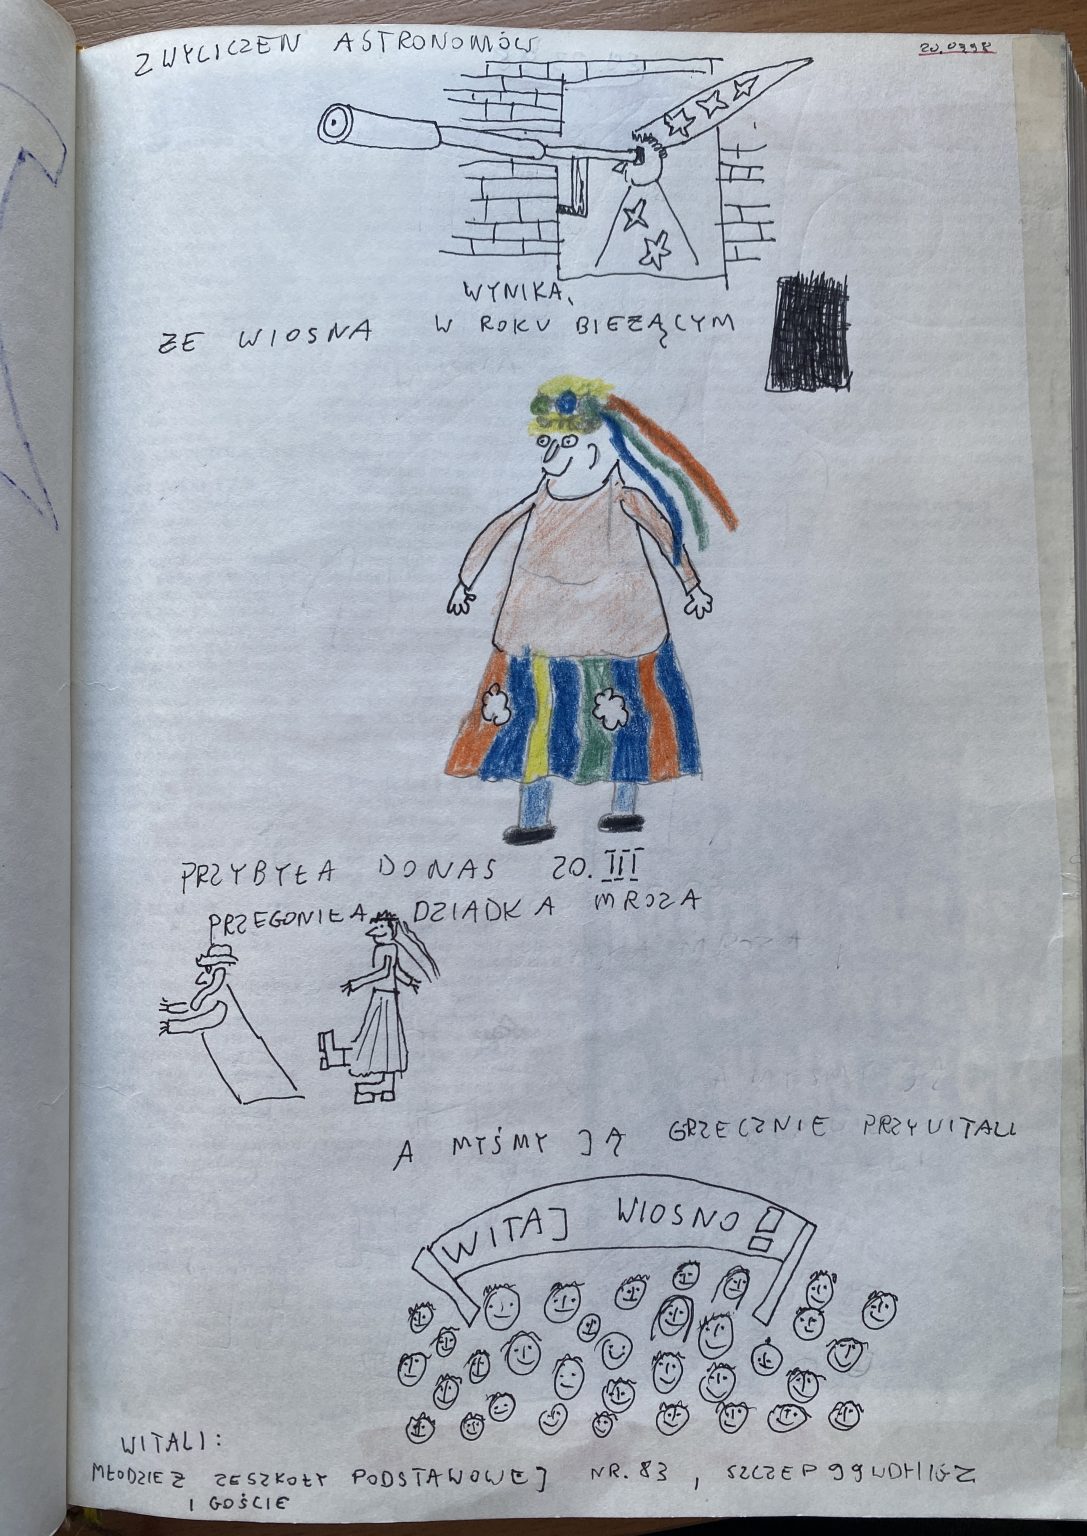 Z WYLICZEŃ ASTRONOMÓW
WYNIKA,
ŻE WIOSNA W ROKU BIEŻĄCYM
PRZYBYŁA DO NAS 20. III
PRZEGONIŁA DZIADKA MROZA
A MYŚMY JĄ GRZECZNIE PRZYWITALI
WITAJ WIOSNO!
WITALI:
MŁODZIEŻ ZE SZKOŁY PODSTAWOWEJ NR. 83, SZCZEP 99 WDHIGZ
I GOŚCIE